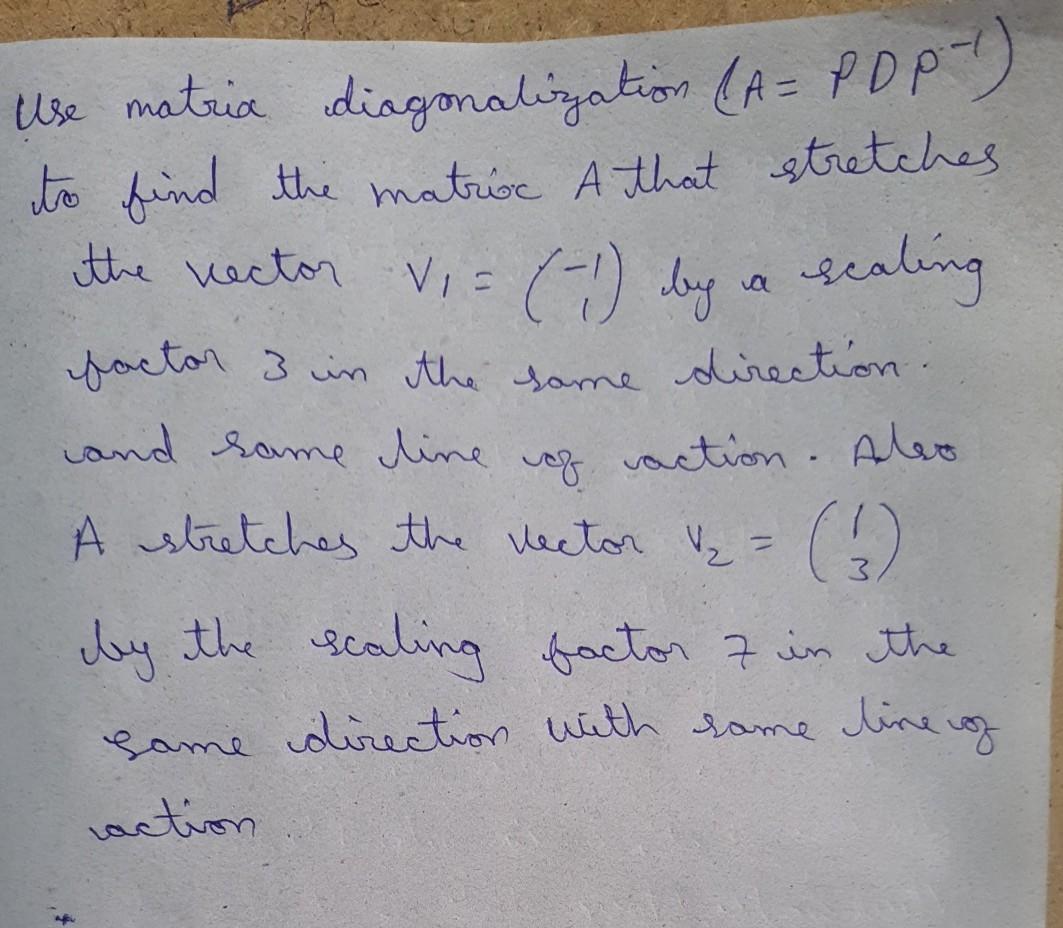 Use matrix diagonalization (A = PDP⁻¹)
to find the matrix A that stretches
the vector V₁ = (-1 1) by a scaling
factor 3 in the same direction.
and same line of action. Also
A stretches the vector V₂ = (1 3)
by the scaling factor 7 in the
same direction with same line of
action.